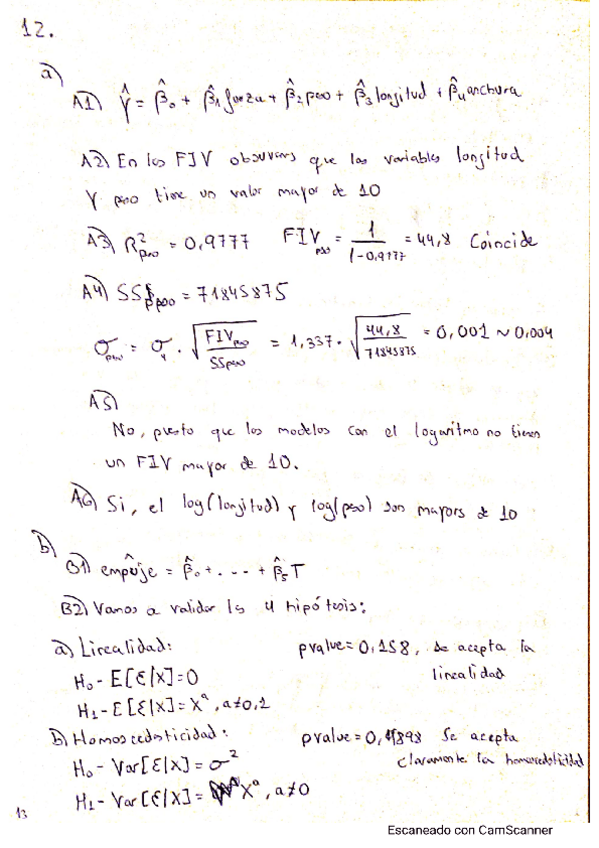 12.
a)
A1) Ŷ = β̂₀ + β̂₁ fuerza + β̂₂ peso + β̂₃ longitud + β̂₄ anchura
A2) En los FIV observamos que las variables longitud
y peso tiene un valor mayor de 10
A3) R²peso = 0,9777 FIVpeso = 1/(1-0,9777) = 44,8 Coincide
A4) SSpeso = 71845875
σpeso = σy · √(FIVpeso/SSpeso) = 1,337 · √(44,8/71845875) = 0,001 ~ 0,004
A5)
No, puesto que los modelos con el logaritmo no tienen
un FIV mayor de 10.
A6) Si, el log(longitud) y log(peso) son mayors de 10
b)
B1) empuje^ = β̂₀ + . - - + β̂₅T
B2) Vamos a validar las 4 hipótesis:
a) Linealidad: pvalue = 0,158, se acepta la
H₀ - E[ε|X] = 0 linealidad
H₁ - E[ε|X] = Xᵃ, a≠0,1
b) Homoscedasticidad: pvalue = Se acepta
H₀ - Var[ε|X] = σ² claramente la homocedasticidad
H₁ - Var[ε|X] = Xᵃ, a≠0
13
Escaneado con CamScanner